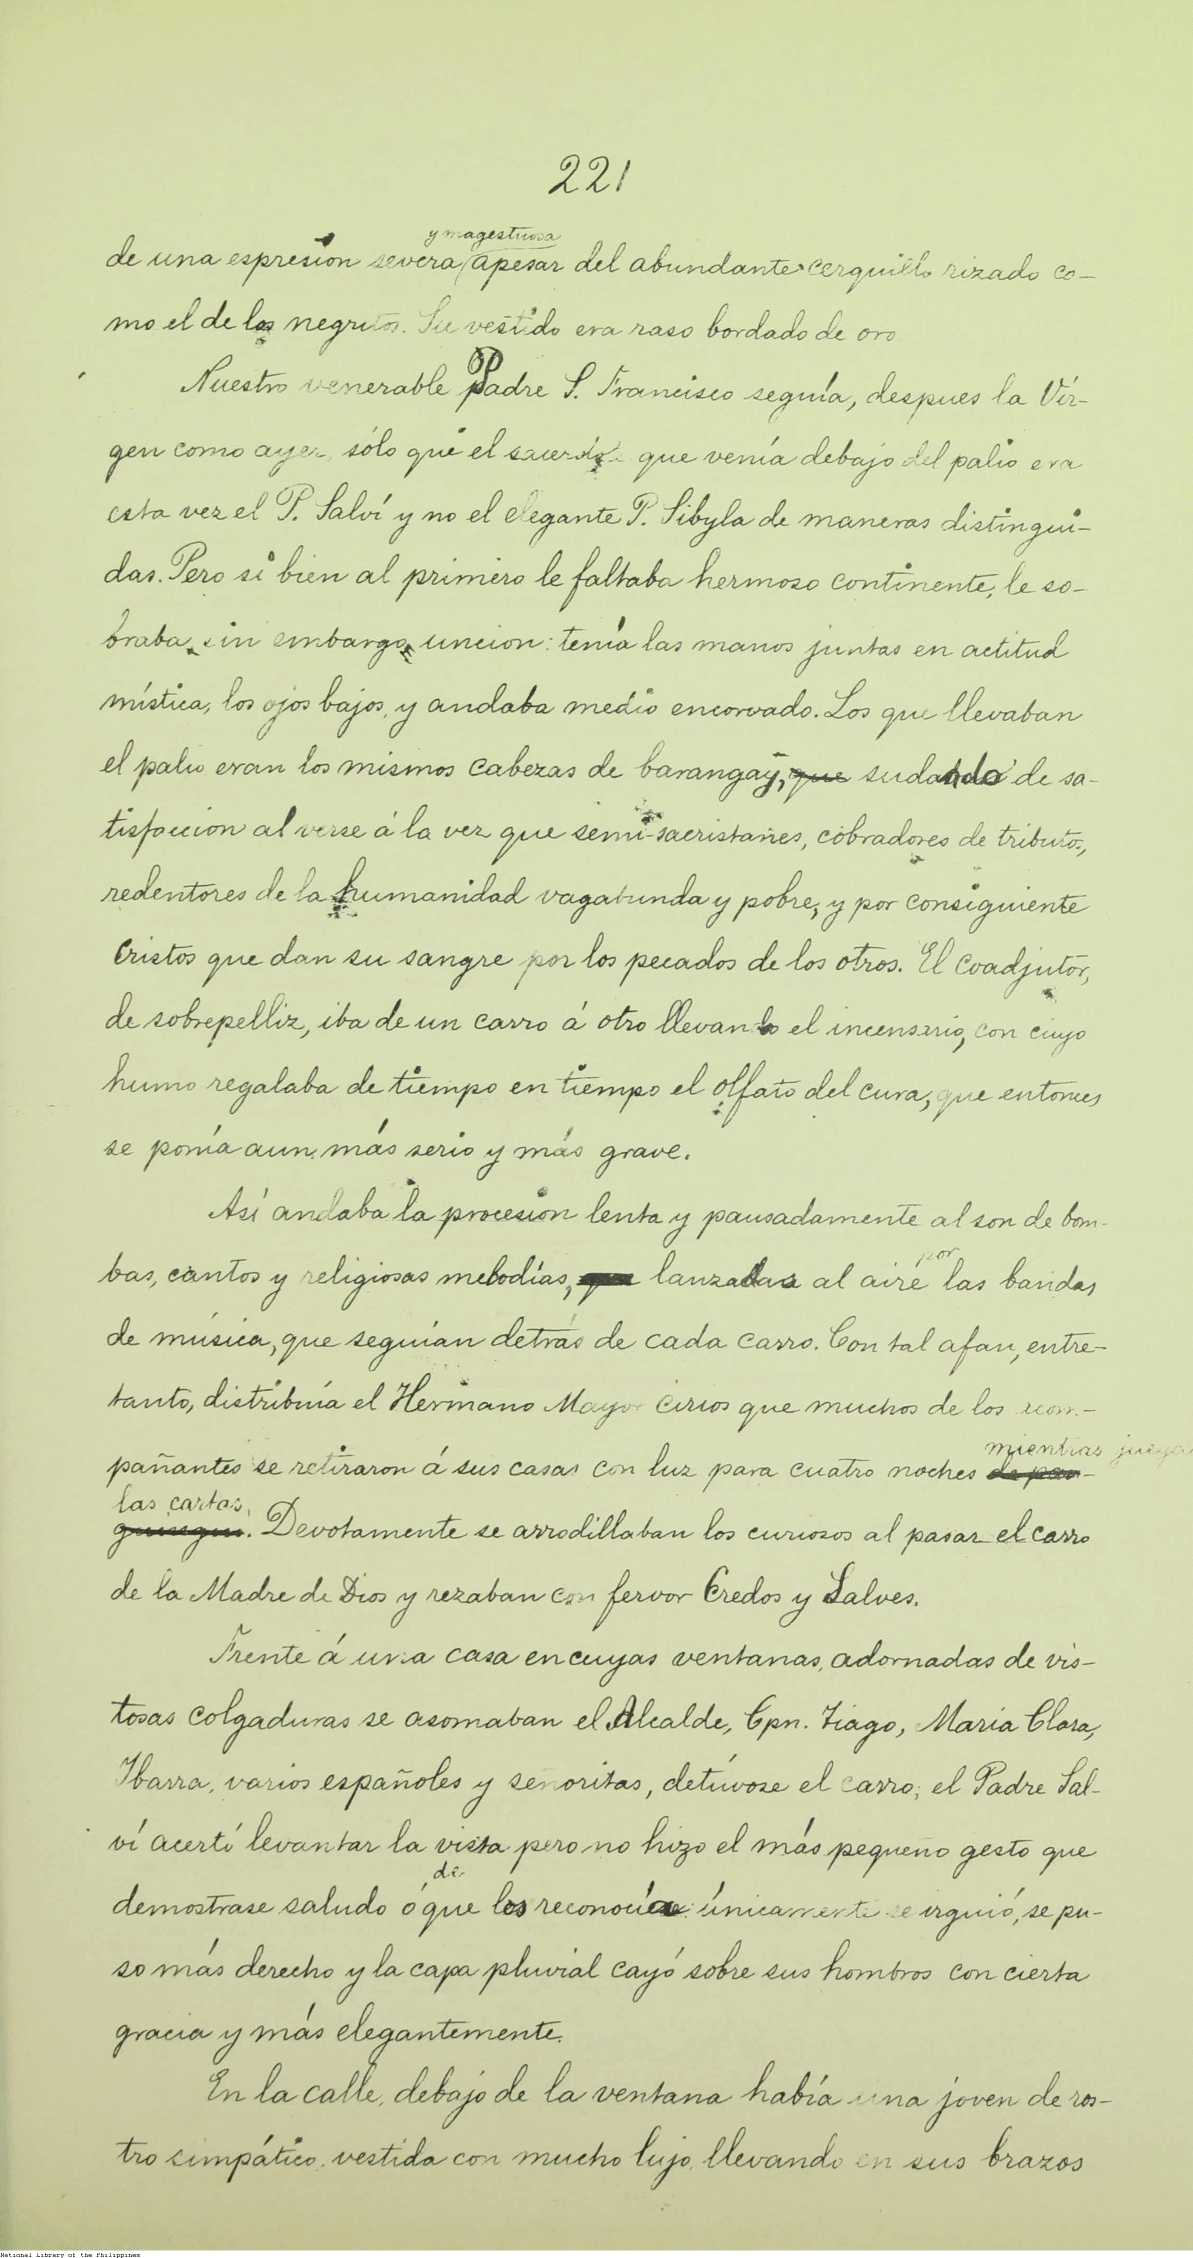 221
y magestuosa
de una espresion severa apesar del abundante cerquillo rizado co-
mo el de los negritos. Su vestido era raso bordado de oro
Nuestro venerable Padre S. Francisco seguía, despues la Vír-
gen como ayer, sólo que el sacerdote que venía debajo del palio era
esta vez el P. Salví y no el elegante P. Sibyla de maneras distingui-
das. Pero si bien al primero le faltaba hermoso continente, le so-
braba, sin embargo, uncion: tenía las manos juntas en actitud
mística, los ojos bajos, y andaba medio encorvado. Los que llevaban
el palio eran los mismos cabezas de barangay, que sudando de sa-
tisfaccion al verse á la vez que semi-sacristanes, cobradores de tributos,
redentores de la humanidad vagabunda y pobre, y por consiguiente
Cristos que dan su sangre por los pecados de los otros. El coadjutor,
de sobrepelliz, iba de un carro á otro llevando el incensario, con cuyo
humo regalaba de tiempo en tiempo el olfato del cura, que entonces
se ponía aun más serio y más grave.
Así andaba la procesion lenta y pausadamente al son de bom-
por
bas, cantos y religiosas melodías, que lanzadas al aire las bandas
de música, que seguían detrás de cada carro. Con tal afan, entre-
tanto, distribuía el Hermano Mayor cirios que muchos de los acom-
mientras juegan
pañantes se retiraron á sus casas con luz para cuatro noches de pan-
las cartas
guingui. Devotamente se arrodillaban los curiosos al pasar el carro
de la Madre de Dios y rezaban con fervor Credos y Salves.
Frente á una casa en cuyas ventanas, adornadas de vis-
tosas colgaduras se asomaban el Alcalde, Cpn. Tiago, Maria Clara,
Ibarra, varios españoles y señoritas, detúvose el carro; el Padre Sal-
ví acertó levantar la vista pero no hizo el más pequeño gesto que
de
demostrase saludo ó que los reconocía: únicamente se irguió, se pu-
so más derecho y la capa pluvial cayó sobre sus hombros con cierta
gracia y más elegantemente.
En la calle, debajo de la ventana había una joven de ros-
tro simpático, vestida con mucho lujo, llevando en sus brazos
National Library of the Philippines